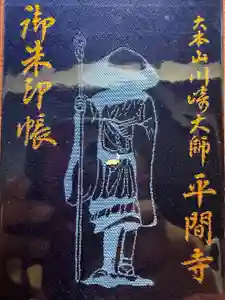 大本山川崎大師 平間寺
御朱印帳